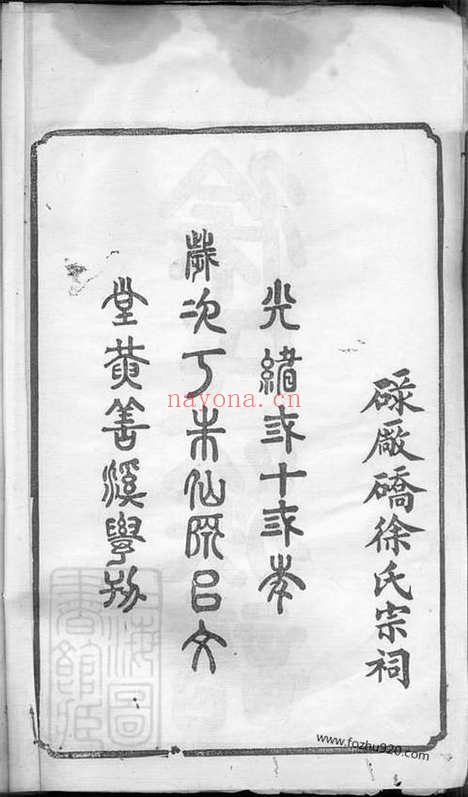 碌厰礄徐氏宗祠
光緒弎十弎年
歲次丁未仙源呂文
堂黃善溪
nayona.cn
www.fozhu920.com